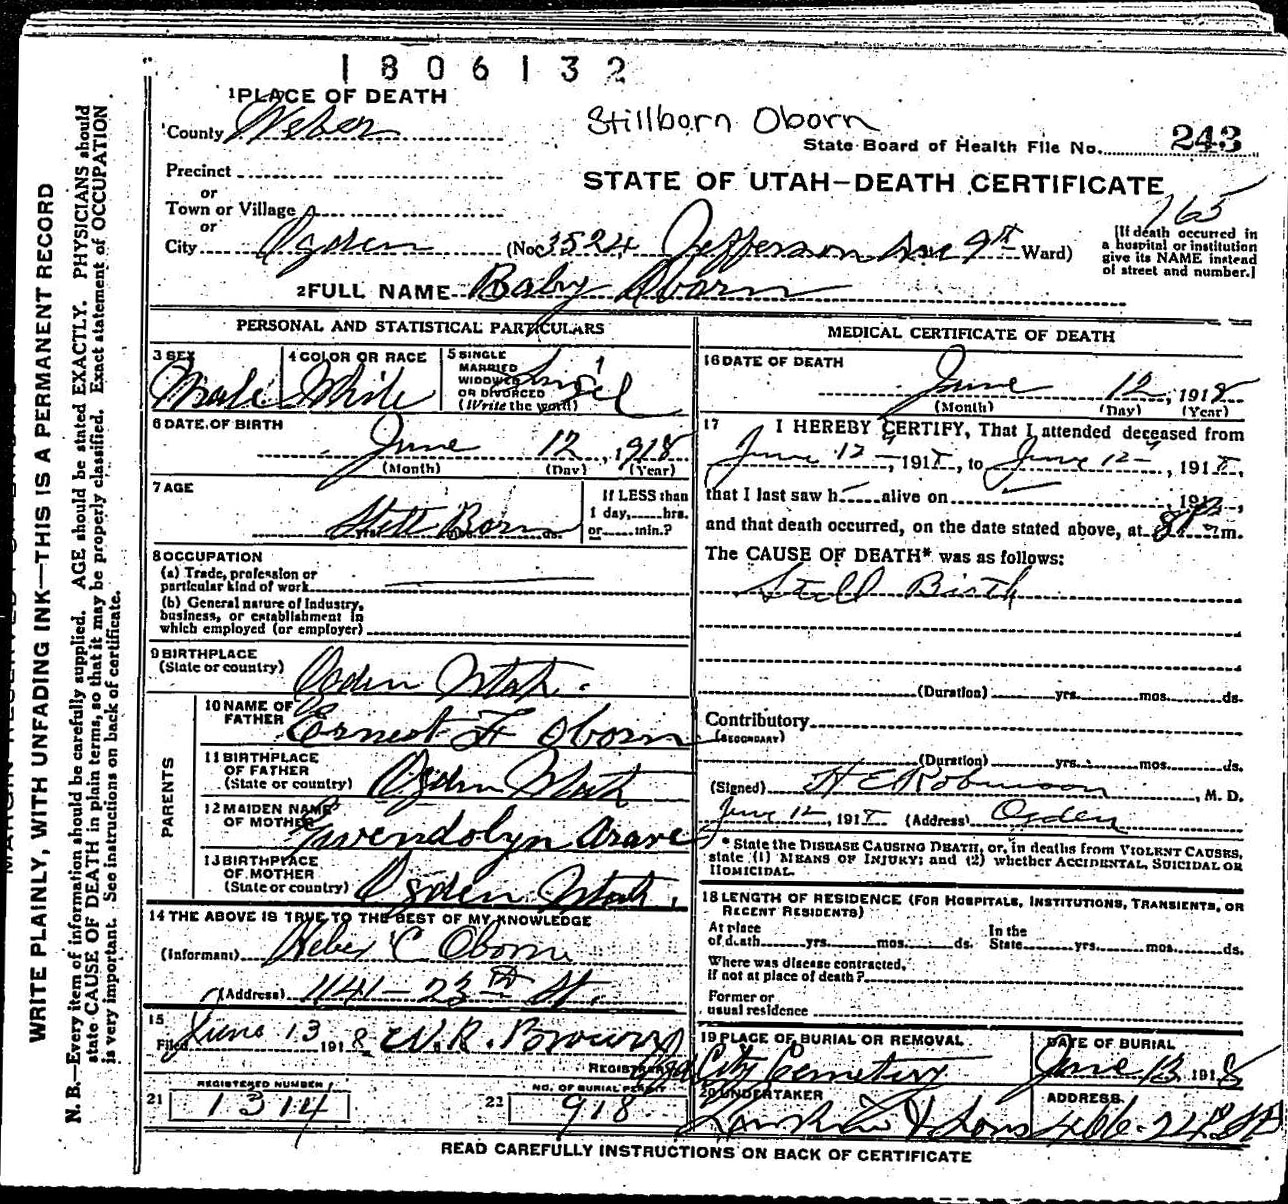 1806132
1 PLACE OF DEATH
County Weber
Stillborn Oborn
State Board of Health File No. 243
Precinct
or
Town or Village
or
STATE OF UTAH—DEATH CERTIFICATE
165
City Ogden (No. 3524 Jefferson Ave 9th Ward)
[If death occurred in
a hospital or institution
give its NAME instead
of street and number.]
2 FULL NAME Baby Oborn
PERSONAL AND STATISTICAL PARTICULARS
3 SEX
Male
4 COLOR OR RACE
White
5 SINGLE
MARRIED
WIDOWED
OR DIVORCED
(Write the word)
6 DATE OF BIRTH
June 12, 1918
(Month) (Day) (Year)
7 AGE
Still Born
yrs. mos. ds.
If LESS than
1 day, hrs.
or min.?
8 OCCUPATION
(a) Trade, profession or
particular kind of work
(b) General nature of Industry,
business, or establishment in
which employed (or employer)
9 BIRTHPLACE
(State or country) Ogden Utah.
PARENTS
10 NAME OF
FATHER Ernest F Oborn
11 BIRTHPLACE
OF FATHER
(State or country) Ogden Utah
12 MAIDEN NAME
OF MOTHER Gwendolyn Arave
13 BIRTHPLACE
OF MOTHER
(State or country) Ogden Utah.
14 THE ABOVE IS TRUE TO THE BEST OF MY KNOWLEDGE
(Informant) Heber C Oborn
(Address) 1141-23rd St.
15
Filed June 13 1918 W.R. Brown
REGISTRAR
REGISTERED NUMBER
21 1314
NO. OF BURIAL PERMIT
22 918
MEDICAL CERTIFICATE OF DEATH
16 DATE OF DEATH
June 12, 1918
(Month) (Day) (Year)
17 I HEREBY CERTIFY, That I attended deceased from
June 12, 1918, to June 12, 1918,
that I last saw h alive on 191
and that death occurred, on the date stated above, at 8 m.
The CAUSE OF DEATH* was as follows:
Still Birth
(Duration) yrs. mos. ds.
Contributory
(SECONDARY)
(Duration) yrs. mos. ds.
(Signed) H E Robinson, M. D.
June 12, 1918 (Address) Ogden
* State the DISEASE CAUSING DEATH, or, in deaths from VIOLENT CAUSES,
state (1) MEANS OF INJURY; and (2) whether ACCIDENTAL, SUICIDAL OR
HOMICIDAL.
18 LENGTH OF RESIDENCE (FOR HOSPITALS, INSTITUTIONS, TRANSIENTS, OR
RECENT RESIDENTS)
At place
of death yrs. mos. ds.
In the
State yrs. mos. ds.
Where was disease contracted,
if not at place of death?
Former or
usual residence
19 PLACE OF BURIAL OR REMOVAL
City Cemetery
DATE OF BURIAL
June 13 1918
20 UNDERTAKER
& Sons
ADDRESS
466-24th St
READ CAREFULLY INSTRUCTIONS ON BACK OF CERTIFICATE
WRITE PLAINLY, WITH UNFADING INK—THIS IS A PERMANENT RECORD
N. B.—Every item of information should be carefully supplied. AGE should be stated EXACTLY. PHYSICIANS should
state CAUSE OF DEATH in plain terms, so that it may be properly classified. Exact statement of OCCUPATION
is very important. See instructions on back of certificate.